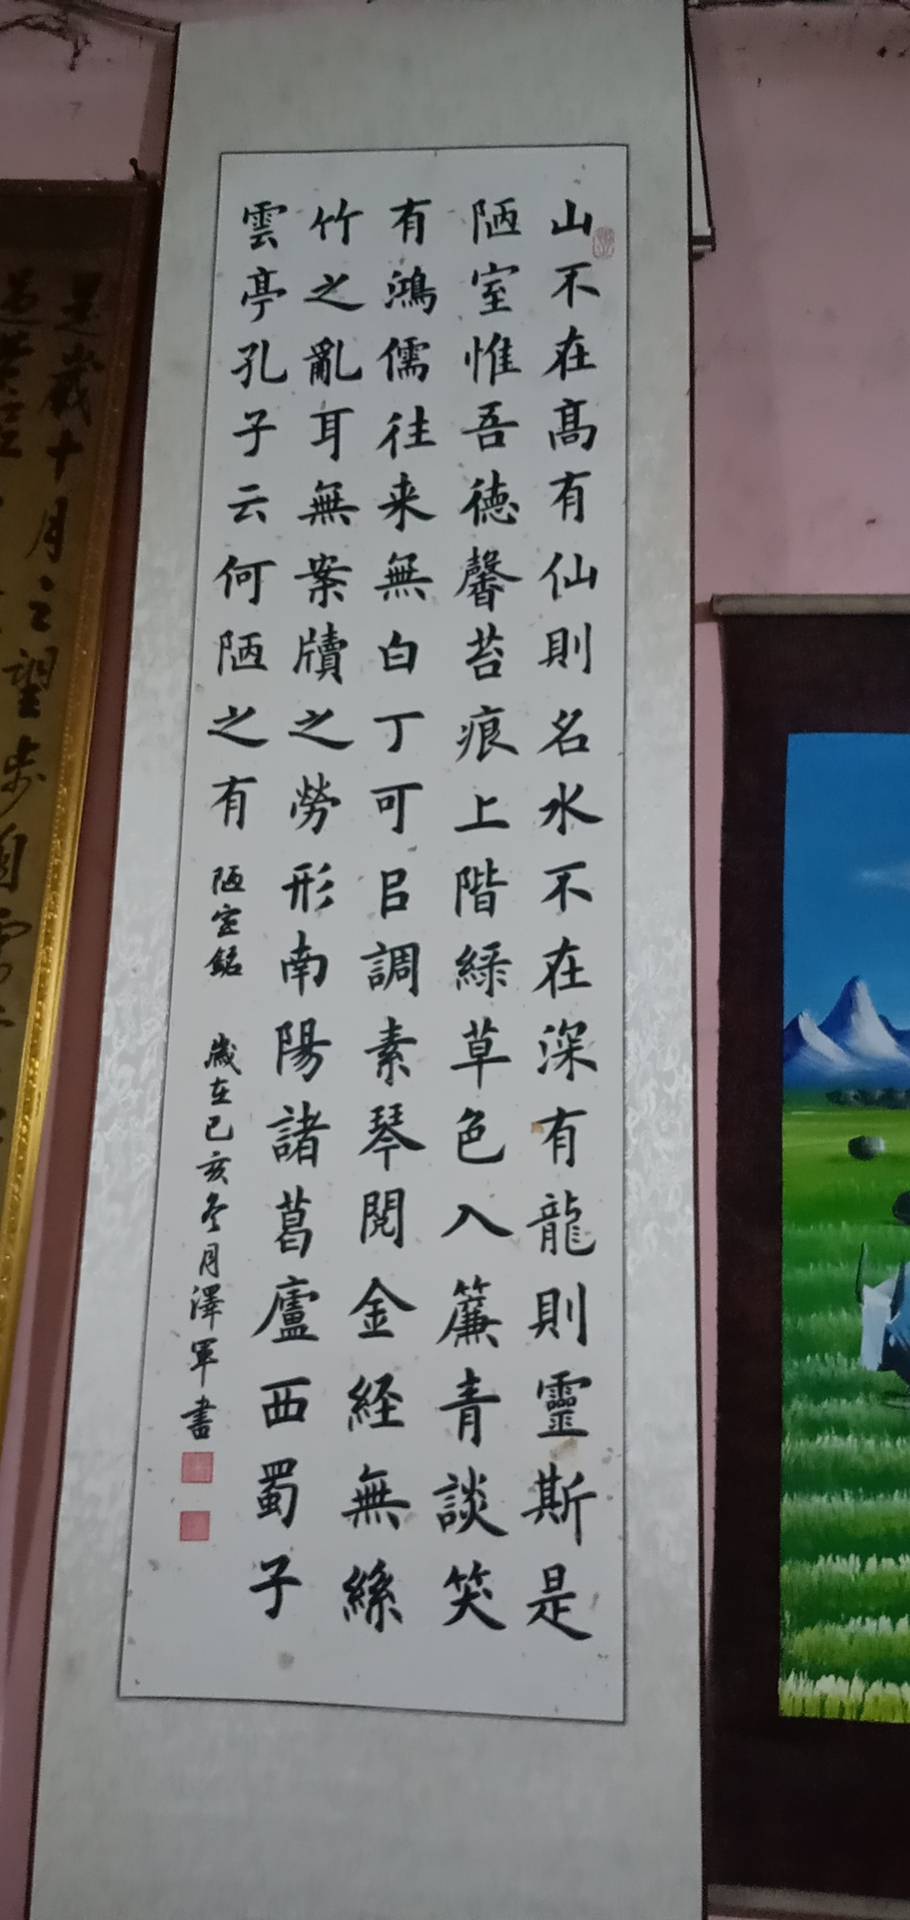 山不在高有仙則名水不在深有龍則靈斯是
陋室惟吾德馨苔痕上階緑草色入簾青談笑
有鴻儒往来無白丁可㠯調素琴閱金経無絲
竹之亂耳無案牘之勞形南陽諸葛廬西蜀子
雲亭孔子云何陋之有
陋室銘 歲在己亥冬月澤軍書
是歲十月之望步自雪